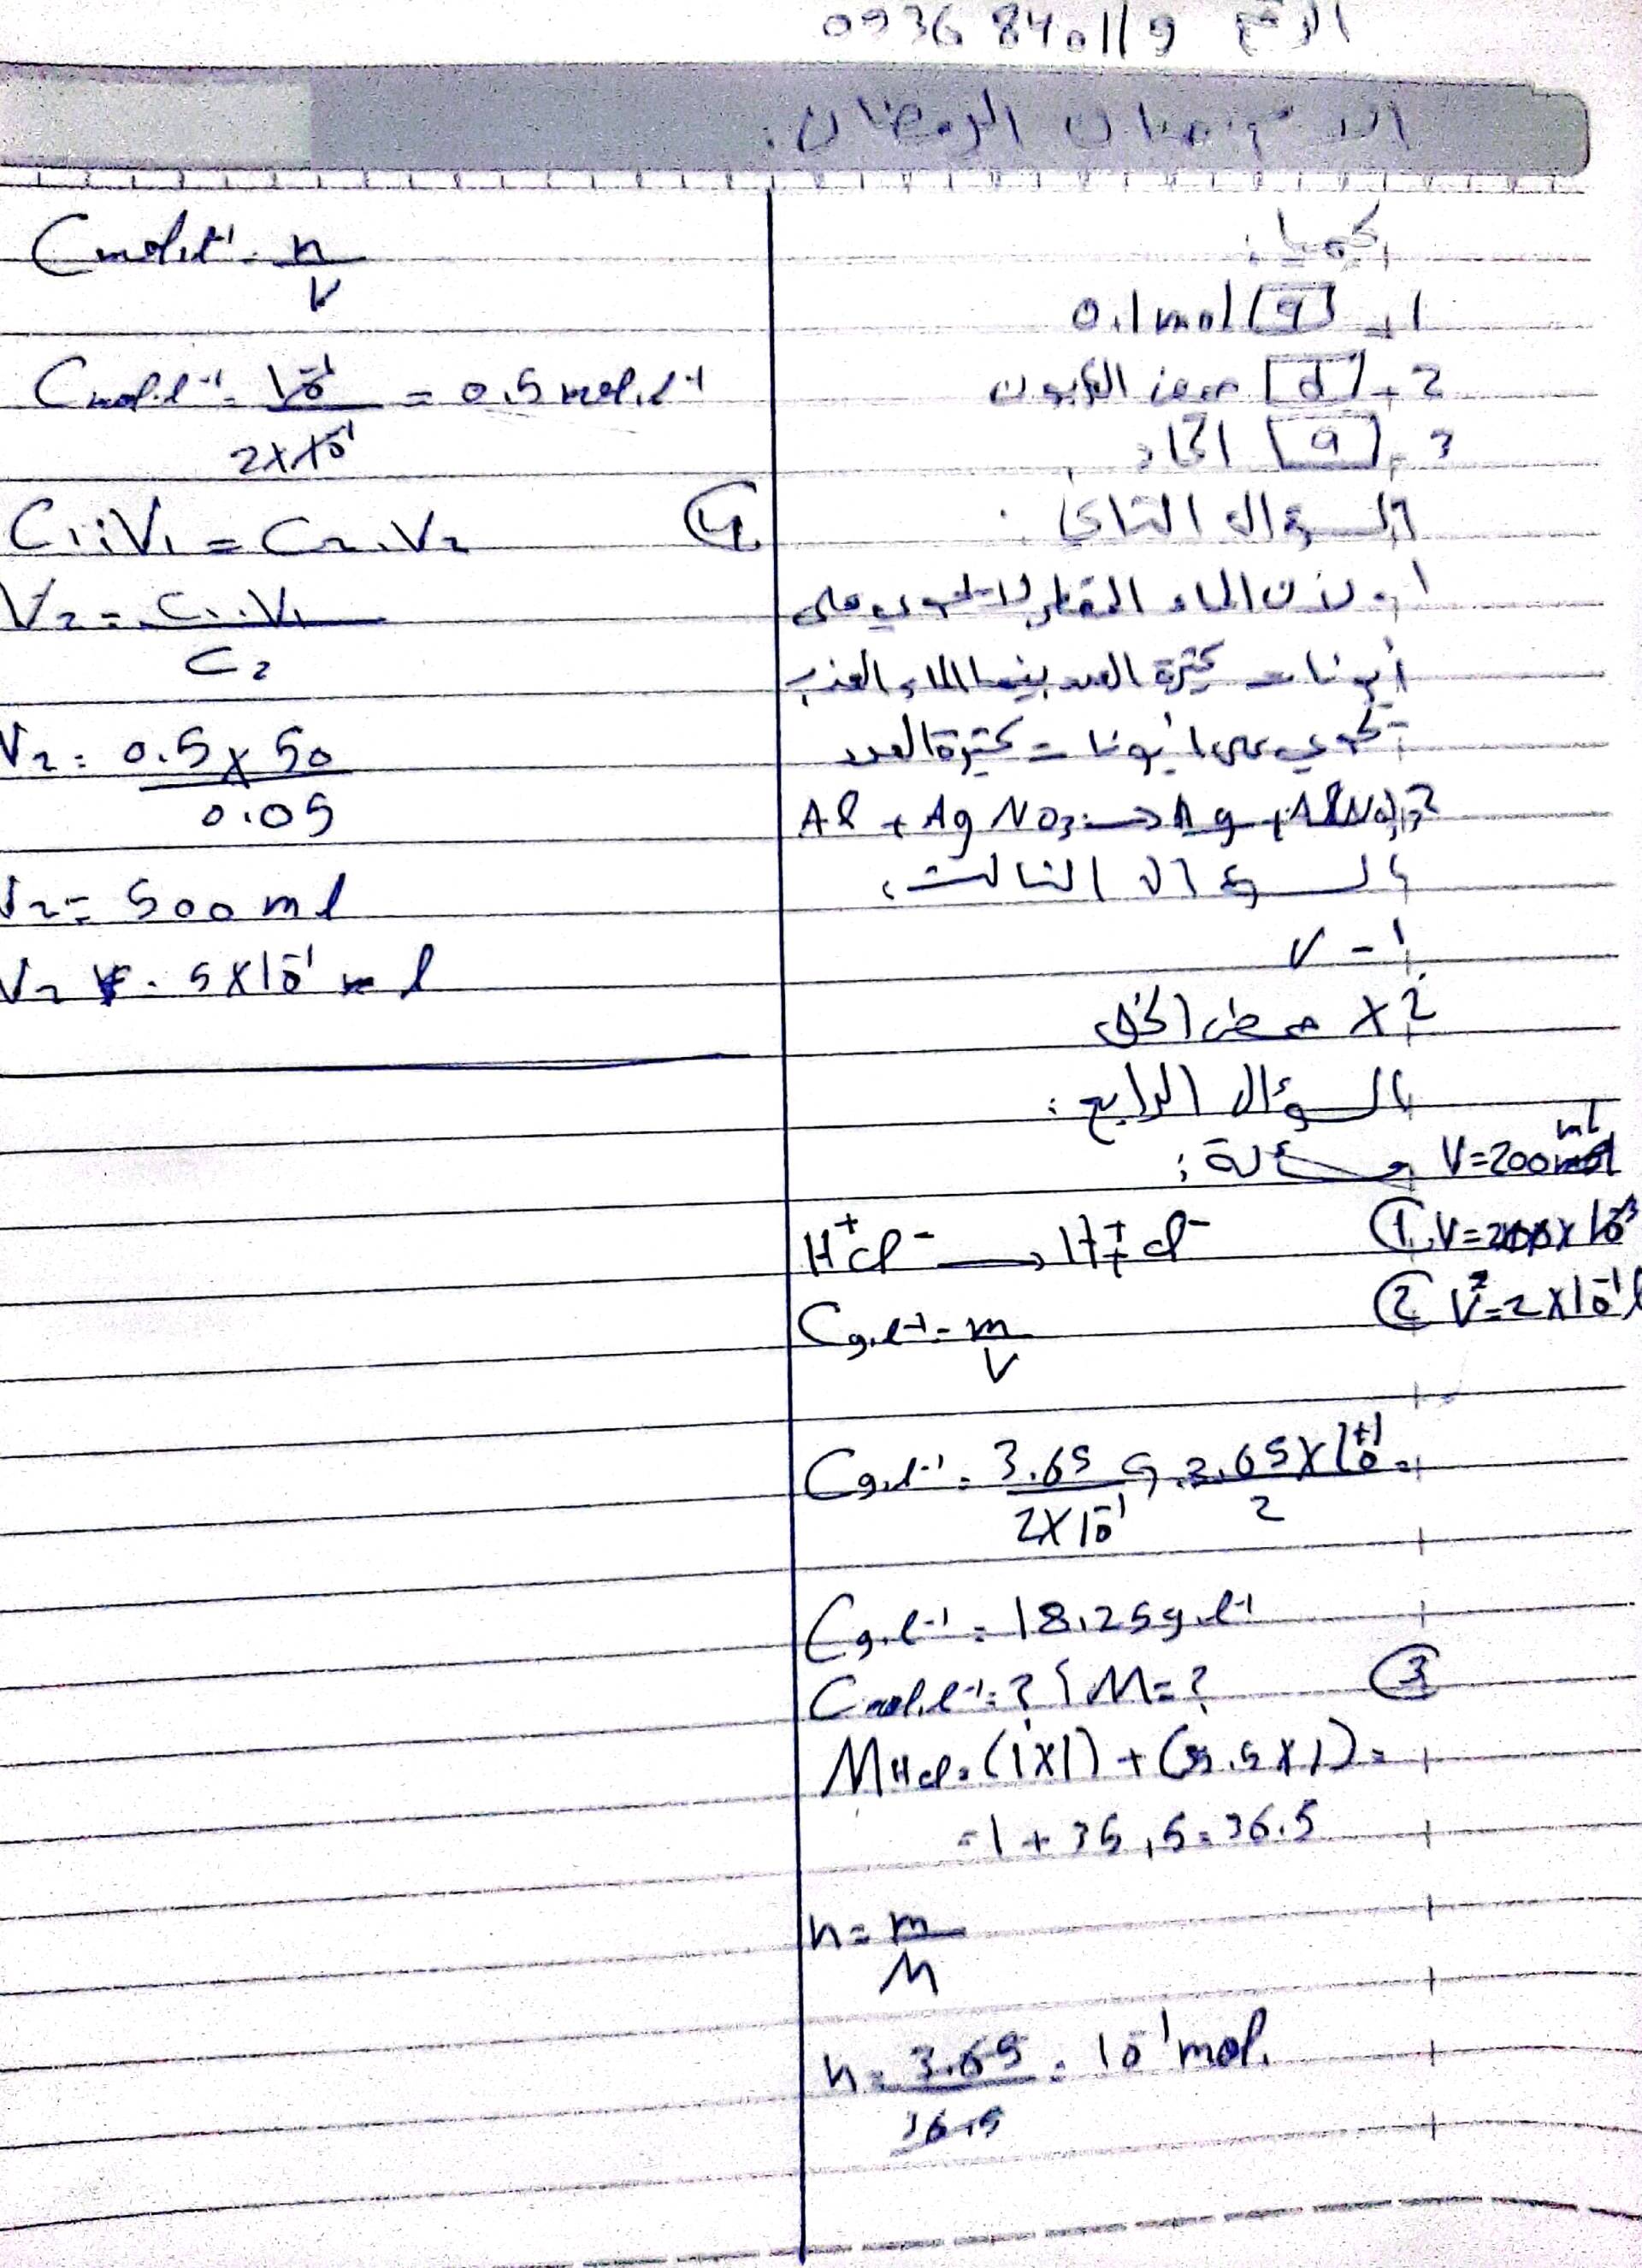 الرقم 0936840119
الامتحان الرمضان:
كيميا:
1- a 0.1mol
2- d حمض الكربون
3- a اتحاد
السؤال الثاني:
1- لأن الماء المقطر لا يحتوي على
أيونات كثيرة العدد بينما الماء العذب
تحوي على أيونات كثيرة العدد
2- Al + AgNO3 → Ag + Al(NO3)3
السؤال الثالث:
1- V
2 X حمض الخل
السؤال الرابع:
مسألة: V=200ml
H+Cl- → H+ + Cl- ① V=200x10-3
② V=2X10-1l
Cg.l-1 = m/V
Cg.l-1 = 3.65/2X10-1 = 3.65X10+1/2 =
Cg.l-1 = 18.25g.l-1
③ Cmol.l-1=? M=?
MHCl = (1X1) + (35.5X1) =
= 1 + 35,5 = 36.5
n = m/M
n = 3.65/36.5 = 10-1 mol.
Cmol.l-1 = n/V
Cmol.l-1 = 10-1/2X10-1 = 0.5mol.l-1
④ C1.V1 = C2.V2
V2 = C1.V1/C2
V2 = 0.5X50/0.05
V2 = 500ml
V2 = 5X10-1 l